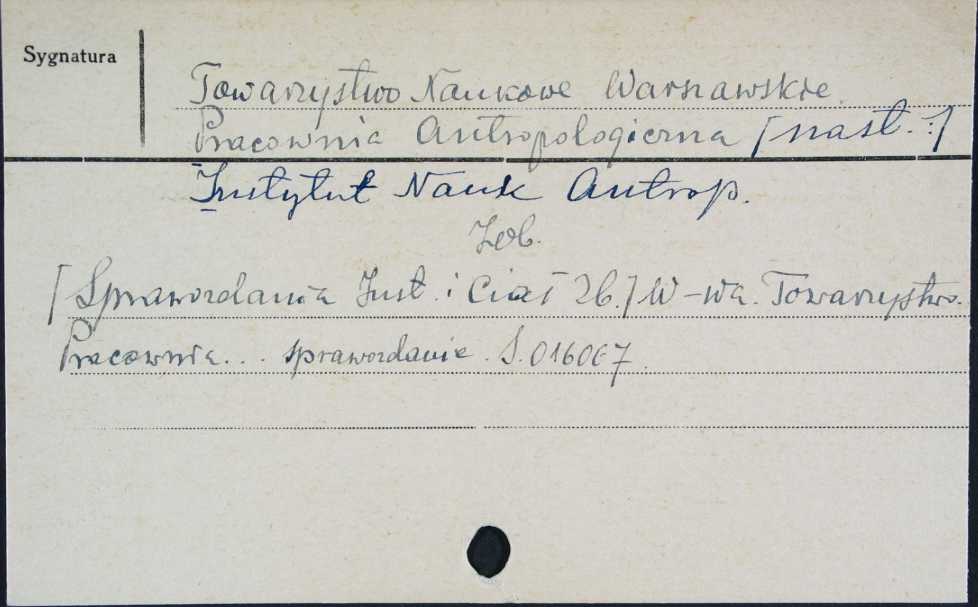 Sygnatura
Towarzystwo Naukowe Warszawskie.
Pracownia Antropologiczna [nast.:]
Instytut Nauk Antrop.
Zob.
[Sprawozdania Inst. i Ciał Zb.] W-wa. Towarzystwo.
Pracownia... sprawozdanie. S.016067.